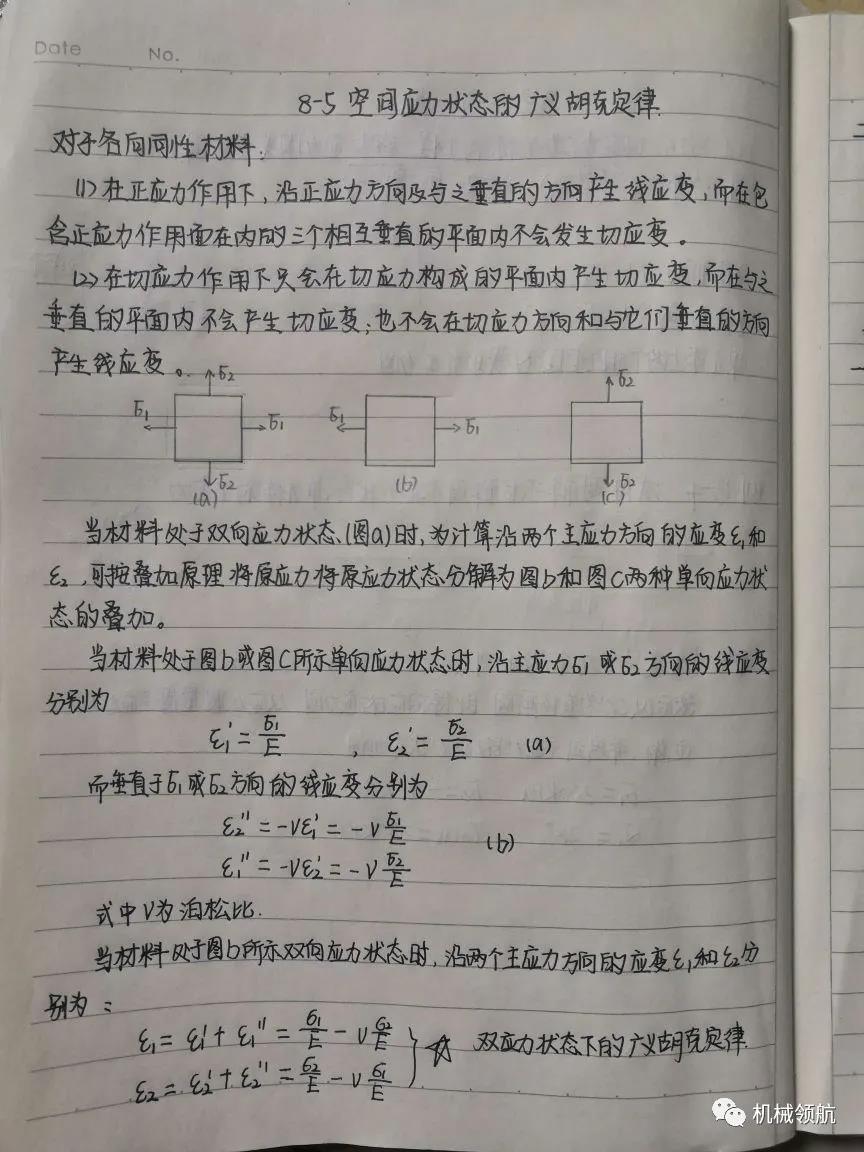 Date No.
8-5 空间应力状态的广义胡克定律.
对于各向同性材料:
(1) 在正应力作用下,沿正应力方向及与之垂直的方向产生线应变,而在包
含正应力作用面在内的三个相互垂直的平面内不会发生切应变。
(2) 在切应力作用下只会在切应力构成的平面内产生切应变,而在与之
垂直的平面内不会产生切应变;也不会在切应力方向和与它们垂直的方向
产生线应变。
σ2 σ2
σ1 σ1 σ1 σ1
σ2 σ2
(a) (b) (c)
当材料处于双向应力状态(图a)时,为计算沿两个主应力方向的应变ε1和
ε2,可按叠加原理将原应力将原应力状态分解为图b和图C两种单向应力状
态的叠加。
当材料处于图b或图C所示单向应力状态时,沿主应力σ1或σ2方向的线应变
分别为
ε1′ = σ1/E , ε2′ = σ2/E (a)
而垂直于σ1或σ2方向的线应变分别为
ε2″ = -νε1′ = -ν σ1/E
(b)
ε1″ = -νε2′ = -ν σ2/E
式中ν为泊松比.
当材料处于图b所示双向应力状态时,沿两个主应力方向的应变ε1和ε2分
别为:
ε1 = ε1′ + ε1″ = σ1/E - ν σ2/E
} ☆ 双应力状态下的广义胡克定律
ε2 = ε2′ + ε2″ = σ2/E - ν σ1/E
机械领航